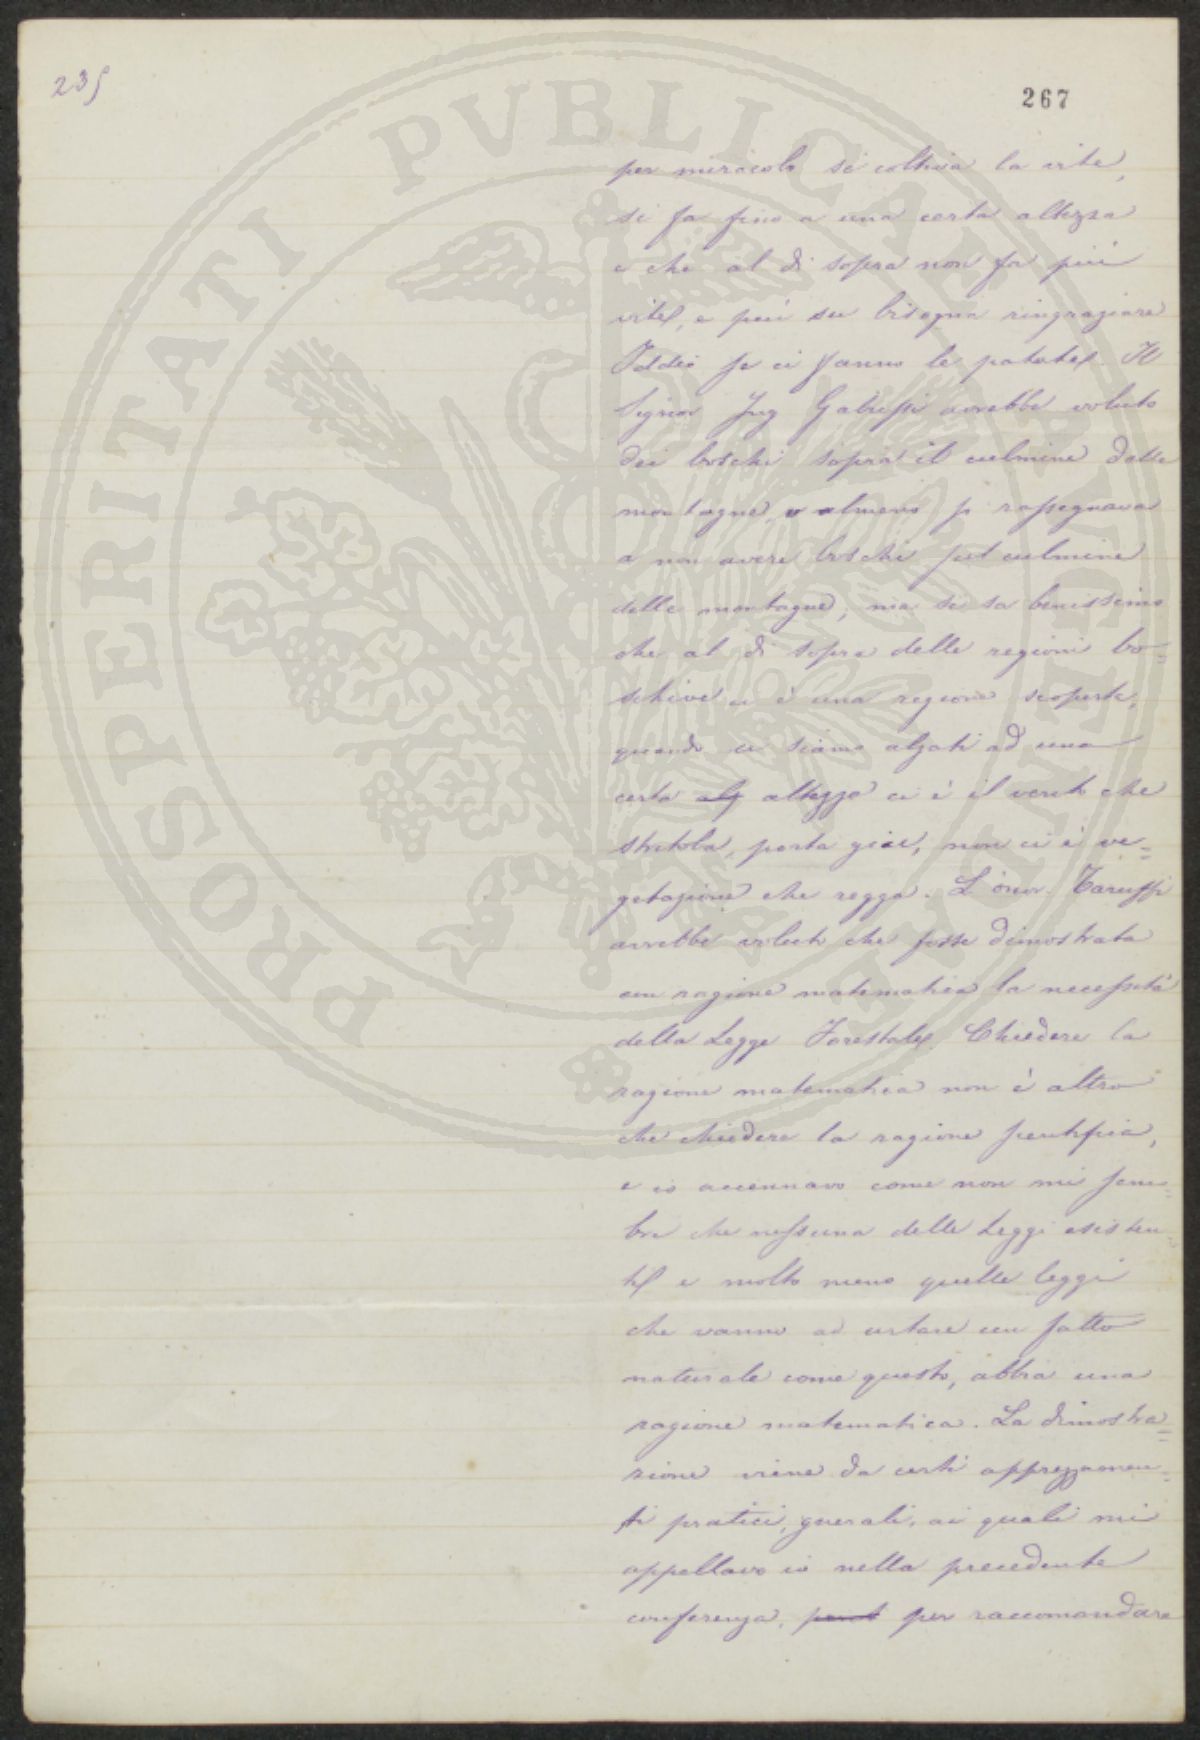 235
267
PROSPERITATI PVBLICAE AVGENDAE
per miracolo si coltiva la vite,
si fa fino a una certa altezza
e che al di sopra non fa più
vite, e più su bisogna ringraziare
Iddio se ci fanno le patate. Il
Signor Ing Gabussi avrebbe voluto
dei boschi sopra il culmine delle
montagne, o almeno si rassegnava
a non avere boschi sul culmine
delle montagne, ma si sa benissimo
che al di sopra delle regioni bo=
schive ci è una regione scoperta,
quando ci siamo alzati ad una
certa alz altezza ci è il vento che
stritola, porta giù, non ci è ve=
getazione che regga. L'onor. Taruffi
avrebbe voluto che fosse dimostrata
con ragione matematica la necessità
della Legge Forestale. Chiedere la
ragione matematica non è altro
che chiedere la ragione scientifica,
e io accennavo come non mi sem=
bra che nessuna delle Leggi esisten=
ti e molto meno quelle leggi
che vanno ad urtare un fatto
naturale come questo, abbia una
ragione matematica. La dimostra=
zione viene da certi apprezzamen=
ti pratici, generali, ai quali mi
appellavo io nella precedente
conferenza, per raccomandare